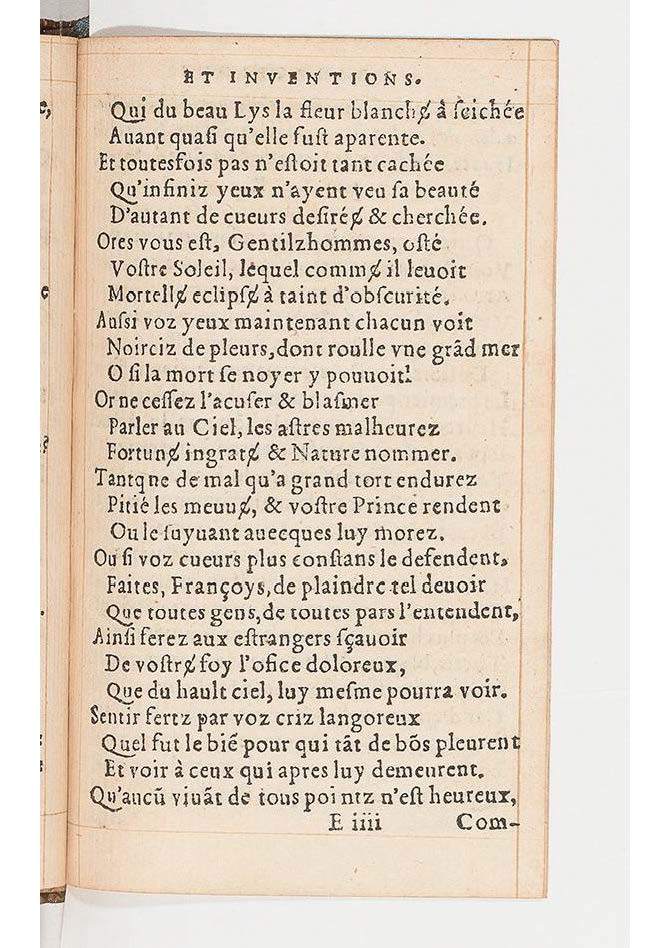 ET INVENTIONS.
Qui du beau Lys la fleur blanchɇ à ſeichée
Auant quaſi qu'elle fuſt aparente.
Et toutesfois pas n'eſtoit tant cachée
Qu'infiniz yeux n'ayent veu ſa beauté
D'autant de cueurs deſiréɇ & cherchée.
Ores vous eſt, Gentilzhommes, oſté
Voſtre Soleil, lequel commɇ il leuoit
Mortellɇ eclipſɇ à taint d'obſcurité.
Auſsi voz yeux maintenant chacun voit
Noirciz de pleurs, dont roulle vne grãd mer
O ſi la mort ſe noyer y pouuoit!
Or ne ceſſez l'acuſer & blaſmer
Parler au Ciel, les aſtres malheurez
Fortunɇ ingratɇ & Nature nommer.
Tantqne de mal qu'a grand tort endurez
Pitié les meuuɇ, & voſtre Prince rendent
Ou le ſuyuant auecques luy morez.
Ou ſi voz cueurs plus conſtans le defendent,
Faites, Françoys, de plaindre tel deuoir
Que toutes gens, de toutes pars l'entendent,
Ainſi ferez aux eſtrangers ſçauoir
De voſtrɇ foy l'ofice doloreux,
Que du hault ciel, luy meſme pourra voir.
Sentir fertz par voz criz langoreux
Quel fut le biẽ pour qui tãt de bõs pleurent
Et voir à ceux qui apres luy demeurent.
Qu'aucũ viuãt de tous pointz n'eſt heureux,
E iiii Com-